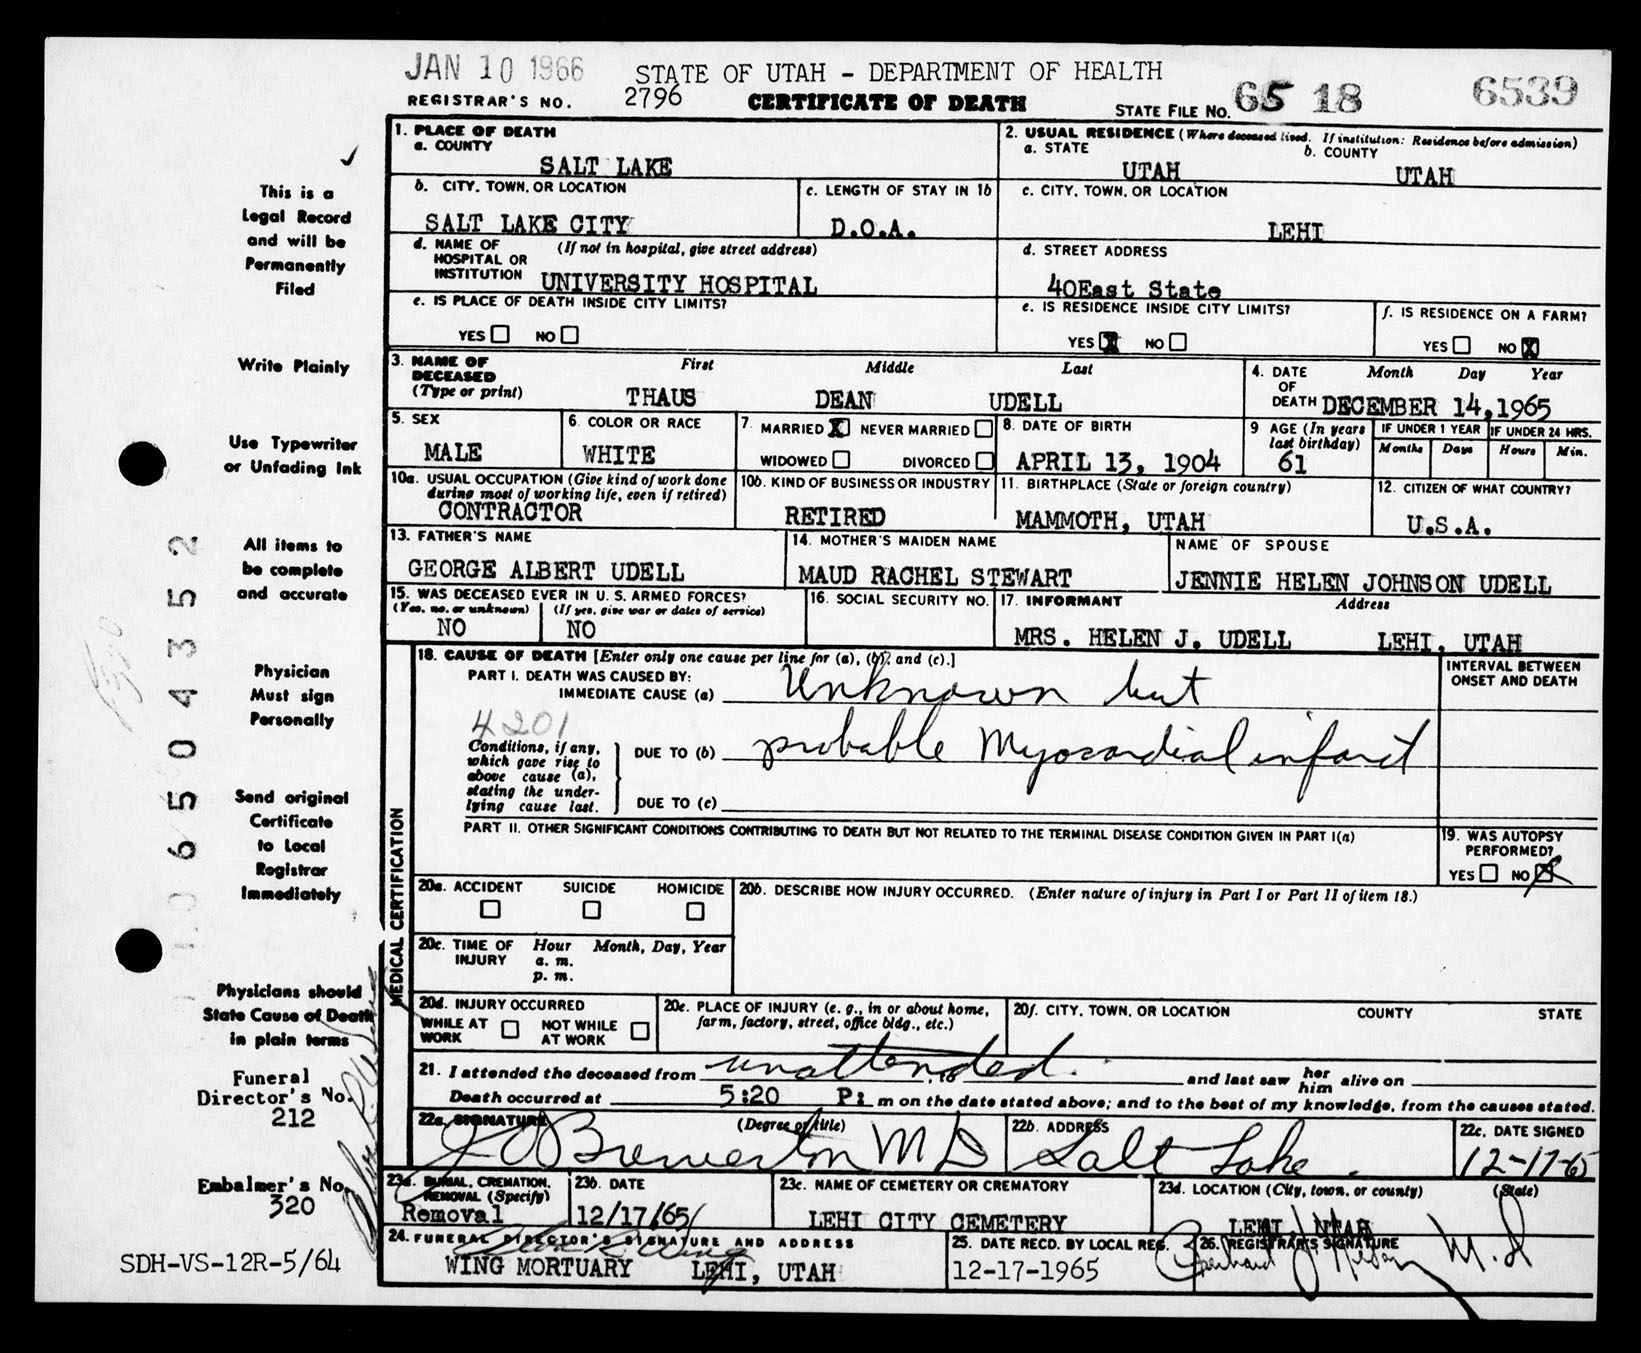 JAN 10 1966
STATE OF UTAH - DEPARTMENT OF HEALTH
REGISTRAR'S NO. 2796 CERTIFICATE OF DEATH STATE FILE NO. 65 18 6539
1. PLACE OF DEATH
a. COUNTY
SALT LAKE
2. USUAL RESIDENCE (Where deceased lived. If institution: Residence before admission)
a. STATE b. COUNTY
UTAH UTAH
b. CITY, TOWN, OR LOCATION c. LENGTH OF STAY IN 1b
SALT LAKE CITY D.O.A.
c. CITY, TOWN, OR LOCATION
LEHI
d. NAME OF (If not in hospital, give street address)
HOSPITAL OR
INSTITUTION UNIVERSITY HOSPITAL
d. STREET ADDRESS
40East State
e. IS PLACE OF DEATH INSIDE CITY LIMITS?
YES NO
e. IS RESIDENCE INSIDE CITY LIMITS?
YES X NO
f. IS RESIDENCE ON A FARM?
YES NO X
3. NAME OF First Middle Last
DECEASED
(Type or print) THAUS DEAN UDELL
4. DATE Month Day Year
OF
DEATH DECEMBER 14,1965
5. SEX
MALE
6. COLOR OR RACE
WHITE
7. MARRIED X NEVER MARRIED
WIDOWED DIVORCED
8. DATE OF BIRTH
APRIL 13, 1904
9 AGE (In years
last birthday)
61
IF UNDER 1 YEAR IF UNDER 24 HRS.
Months Days Hours Min.
10a. USUAL OCCUPATION (Give kind of work done
during most of working life, even if retired)
CONTRACTOR
10b. KIND OF BUSINESS OR INDUSTRY
RETIRED
11. BIRTHPLACE (State or foreign country)
MAMMOTH, UTAH
12. CITIZEN OF WHAT COUNTRY?
U.S.A.
13. FATHER'S NAME
GEORGE ALBERT UDELL
14. MOTHER'S MAIDEN NAME
MAUD RACHEL STEWART
NAME OF SPOUSE
JENNIE HELEN JOHNSON UDELL
15. WAS DECEASED EVER IN U. S. ARMED FORCES?
(Yes, no, or unknown) (If yes, give war or dates of service)
NO NO
16. SOCIAL SECURITY NO.
17. INFORMANT Address
MRS. HELEN J. UDELL LEHI, UTAH
MEDICAL CERTIFICATION
18. CAUSE OF DEATH [Enter only one cause per line for (a), (b), and (c).]
INTERVAL BETWEEN
ONSET AND DEATH
PART I. DEATH WAS CAUSED BY:
IMMEDIATE CAUSE (a) Unknown but
4201
Conditions, if any,
which gave rise to
above cause (a),
stating the under-
lying cause last.
DUE TO (b) probable Myocardial infarct
DUE TO (c)
PART II. OTHER SIGNIFICANT CONDITIONS CONTRIBUTING TO DEATH BUT NOT RELATED TO THE TERMINAL DISEASE CONDITION GIVEN IN PART I(a)
19. WAS AUTOPSY
PERFORMED?
YES NO X
20a. ACCIDENT SUICIDE HOMICIDE
20b. DESCRIBE HOW INJURY OCCURRED. (Enter nature of injury in Part I or Part II of item 18.)
20c. TIME OF Hour Month, Day, Year
INJURY a. m.
p. m.
20d. INJURY OCCURRED
WHILE AT NOT WHILE
WORK AT WORK
20e. PLACE OF INJURY (e. g., in or about home,
farm, factory, street, office bldg., etc.)
20f. CITY, TOWN, OR LOCATION COUNTY STATE
21. I attended the deceased from unattended. to and last saw her him alive on
Death occurred at 5:20 P: m on the date stated above; and to the best of my knowledge, from the causes stated.
22a. SIGNATURE (Degree or title)
J O Brewerton M D
22b. ADDRESS
Salt Lake.
22c. DATE SIGNED
12-17-65
23a. BURIAL, CREMATION,
REMOVAL (Specify)
Removal
23b. DATE
12/17/65
23c. NAME OF CEMETERY OR CREMATORY
LEHI CITY CEMETERY
23d. LOCATION (City, town, or county) (State)
LEHI UTAH
24. FUNERAL DIRECTOR'S SIGNATURE AND ADDRESS
WING MORTUARY LEHI, UTAH
25. DATE RECD. BY LOCAL REG.
12-17-1965
26. REGISTRAR'S SIGNATURE
M.D
This is a
Legal Record
and will be
Permanently
Filed
Write Plainly
Use Typewriter
or Unfading Ink
All items to
be complete
and accurate
Physician
Must sign
Personally
Send original
Certificate
to Local
Registrar
Immediately
Physicians should
State Cause of Death
in plain terms
Funeral
Director's No.
212
Embalmer's No.
320
SDH-VS-12R-5/64
65043522